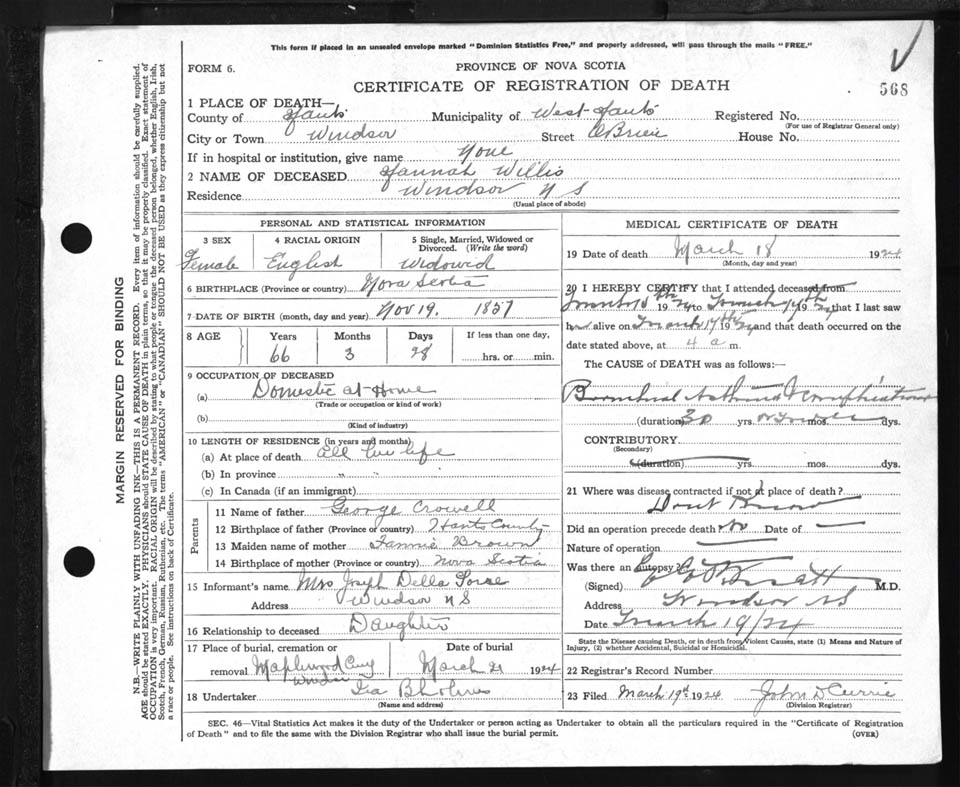 This form if placed in an unsealed envelope marked "Dominion Statistics Free," and properly addressed, will pass through the mails "FREE."
FORM 6.
PROVINCE OF NOVA SCOTIA
CERTIFICATE OF REGISTRATION OF DEATH
568
1 PLACE OF DEATH—
County of Hants Municipality of West Hants Registered No.
(For use of Registrar General only)
City or Town Windsor Street OBrien House No.
If in hospital or institution, give name None
2 NAME OF DECEASED Hannah Willis
Residence Windsor N S
(Usual place of abode)
PERSONAL AND STATISTICAL INFORMATION
3 SEX 4 RACIAL ORIGIN 5 Single, Married, Widowed or Divorced. (Write the word)
Female English Widowed
6 BIRTHPLACE (Province or country) Nova Scotia
7 DATE OF BIRTH (month, day and year) Nov 19. 1857
8 AGE Years Months Days If less than one day,
66 3 28 hrs. or min.
9 OCCUPATION OF DECEASED
(a) Domestic at Home
(Trade or occupation or kind of work)
(b)
(Kind of industry)
10 LENGTH OF RESIDENCE (in years and months)
(a) At place of death all her life
(b) In province " "
(c) In Canada (if an immigrant)
Parents
11 Name of father George Crowell
12 Birthplace of father (Province or country) Hants County
13 Maiden name of mother Fannie Brown
14 Birthplace of mother (Province or country) Nova Scotia
15 Informant's name Mrs Joseph Della Torre
Address Windsor N S
16 Relationship to deceased Daughter
17 Place of burial, cremation or removal Maplewood Cmy Windsor
Date of burial March 21 1924
18 Undertaker Ira B Holmes
(Name and address)
MEDICAL CERTIFICATE OF DEATH
19 Date of death March 18 1924
(Month, day and year)
20 I HEREBY CERTIFY that I attended deceased from
March 17th 19 that I last saw
h alive on March 17th 1924 and that death occurred on the
date stated above, at 4 a m.
The CAUSE OF DEATH was as follows:—
Bronchial Asthma & Complications
(duration) 30 yrs. mos. dys.
CONTRIBUTORY
(Secondary)
(duration) yrs. mos. dys.
21 Where was disease contracted if not at place of death?
Dont Know
Did an operation precede death? No Date of —
Nature of operation —
Was there an autopsy?
(Signed) M.D.
Address Windsor NS
Date March 19/24
State the Disease causing Death, or in death from Violent Causes, state (1) Means and Nature of
Injury, (2) whether Accidental, Suicidal or Homicidal.
22 Registrar's Record Number
23 Filed March 19th 1924 John D Currie
(Division Registrar)
SEC. 46—Vital Statistics Act makes it the duty of the Undertaker or person acting as Undertaker to obtain all the particulars required in the "Certificate of Registration
of Death" and to file the same with the Division Registrar who shall issue the burial permit. (OVER)
MARGIN RESERVED FOR BINDING
N.B.—WRITE PLAINLY WITH UNFADING INK—THIS IS A PERMANENT RECORD. Every item of information should be carefully supplied.
AGE should be stated EXACTLY. PHYSICIANS should STATE CAUSE OF DEATH in plain terms, so that it may be properly classified. Exact statement of
OCCUPATION is very important. RACIAL ORIGIN will be described by stating to what people or tongue the deceased person belonged, whether English, Irish,
Scotch, French, German, Russian, Ruthenian, etc. The terms "AMERICAN" or "CANADIAN" SHOULD NOT BE USED as they express citizenship but not
a race or people. See instructions on back of Certificate.